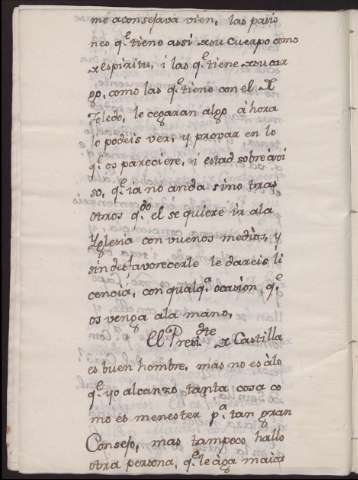 me aconsejava vien, las pasio
nes q.e tiene assi de su cuerpo como
de espiritu, i las q.e tiene de su car
go, como las q.e tiene con el de
Toledo, le cegaran algo ahora
lo podeis ver, y provar en lo
q.e os pareciere, i estad sobre avi
so, q.e ia no anda sino tras
otros q.do el se quiere ir a la
Yglesia con buenos medios, y
sin desfavorecerle le dareis li
cencia, con qualq.a ocasion q.e
os venga a la mano,
El Presi.dte de Castilla
es buen hombre, mas no es a lo
q.e yo alcanzo tanta cosa co
mo es menester p.a tan gran
Consejo, mas tampoco hallo
otra persona, q.e le aga maior